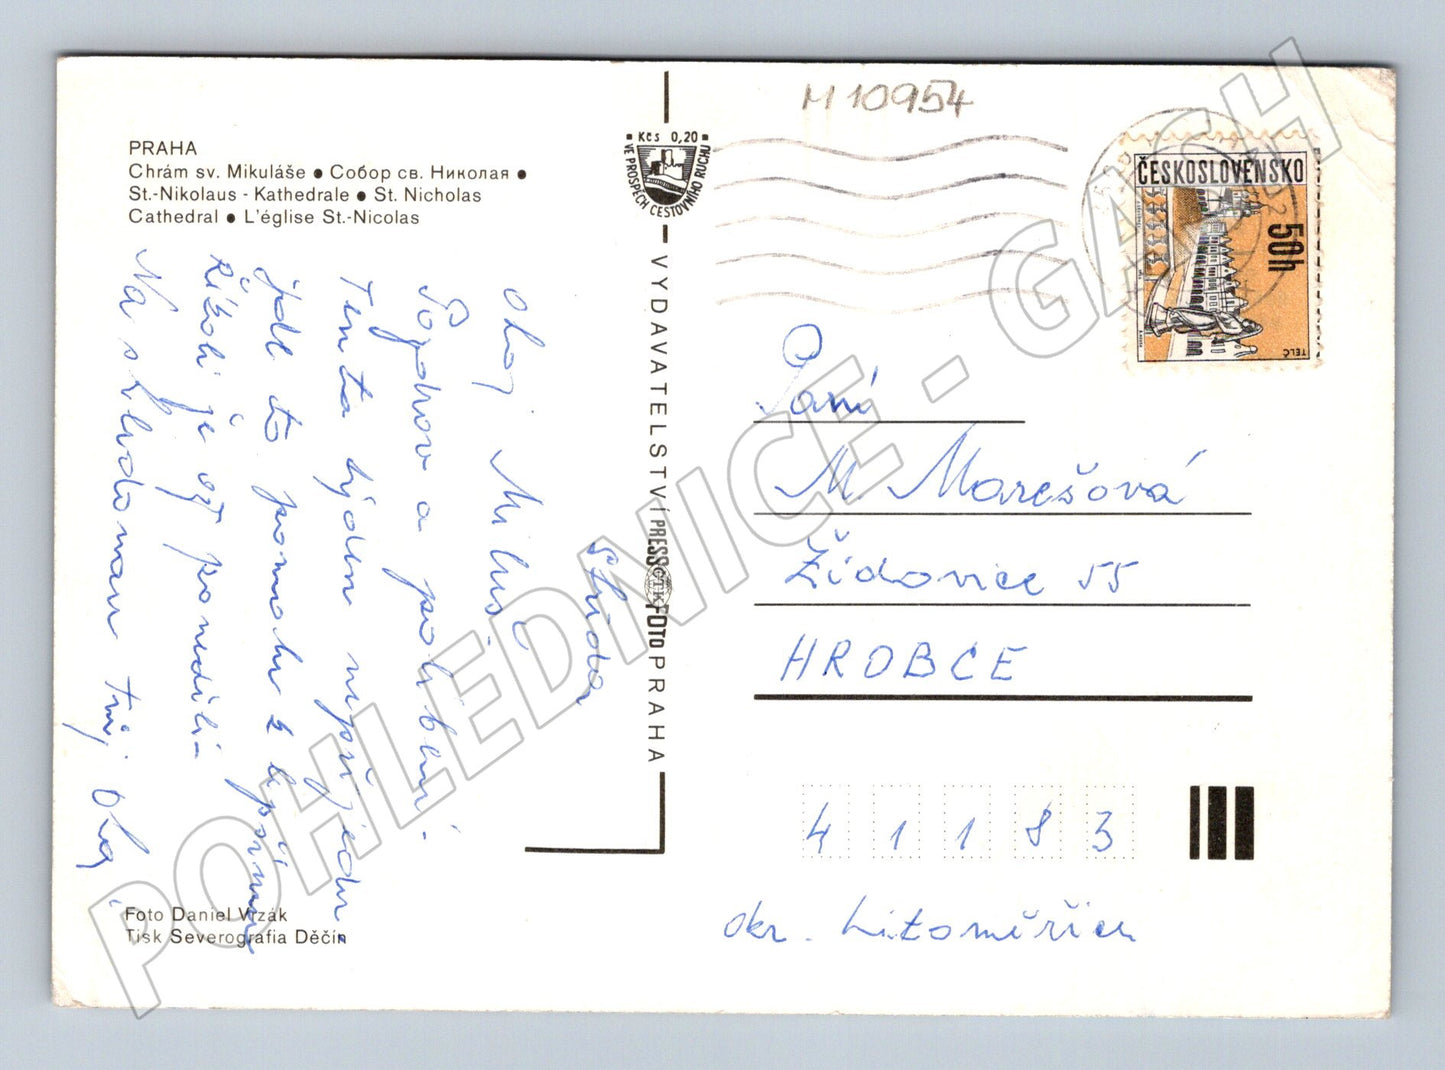 M 10954
PRAHA
Chrám sv. Mikuláše ● Собор св. Николая ●
St.-Nikolaus - Kathedrale ● St. Nicholas
Cathedral ● L'église St.-Nicolas
Kčs 0,20
VE PROSPĚCH CESTOVNÍHO RUCHU
ČESKOSLOVENSKO
50h
TELČ
Středa
Ahoj Miluš
Pozdrav a políbení.
Tento týden nepřijedu.
Jdl to pomalu z
Říkali je až pondělí-
Na shledanou Tvůj
VYDAVATELSTVÍ PRESSFOTO PRAHA
ČTK
Paní
M. Marešová
Židovice 55
HROBCE
4 1 1 8 3
okr. Litoměřice
Foto Daniel Vrzák
Tisk Severografia Děčín
POHLEDNICE - GASH